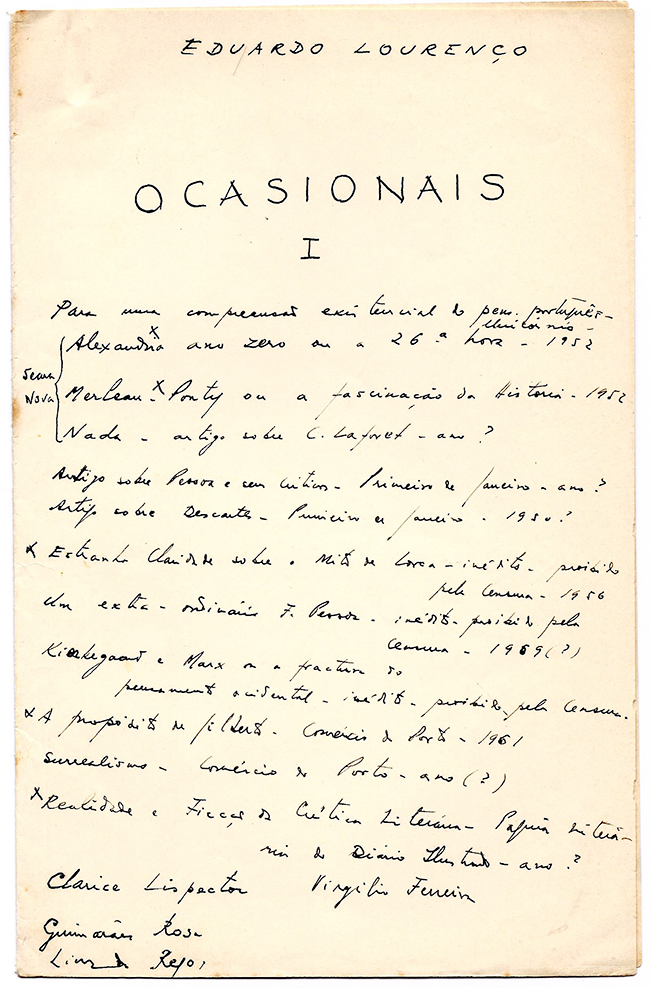 EDUARDO LOURENÇO
OCASIONAIS
I
Para uma compreensão existencial do pens. português -
Unitário -
Alexandria ano zero ou a 26ª hora - 1952
Seara
Nova
Merleau-Ponty ou a fascinação da Historia - 1952
Nada - artigo sobre C. Laforet - ano ?
Artigo sobre Pessoa e seus críticos - Primeiro de Janeiro - ano ?
Artigo sobre Descartes - Primeiro de Janeiro - 1950 ?
x Estranha Claridade sobre o Mito de Lorca - inédito - proibido
pela Censura - 1956
Um extra-ordinário F. Pessoa - inédito - proibido pela
Censura - 1969 (?)
Kierkegaard e Marx ou a fractura do
pensamento ocidental - inédito - proibido pela Censura.
x A propósito de - Comércio do Porto - 1961
Surrealismo - Comércio do Porto - ano (?)
x Realidade e Ficção da Crítica Literária - Página Literá-
ria do Diário Ilustrado - ano ?
Clarice Lispector Virgílio Ferreira
Guimarães Rosa
Rego